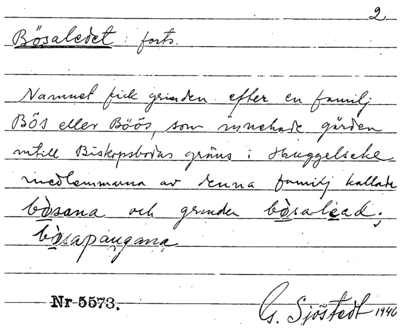 2
Bösaledet: forts.
Namnet fick grinden efter en familj
Bös eller Böös, som innehade gården
intill Biskopsbodas gräns i
medlemmarna av denna familj kallade
bòsana och grinden bòsalead;
bòsapangana
Nr 5573.
G. Sjöstedt 1940